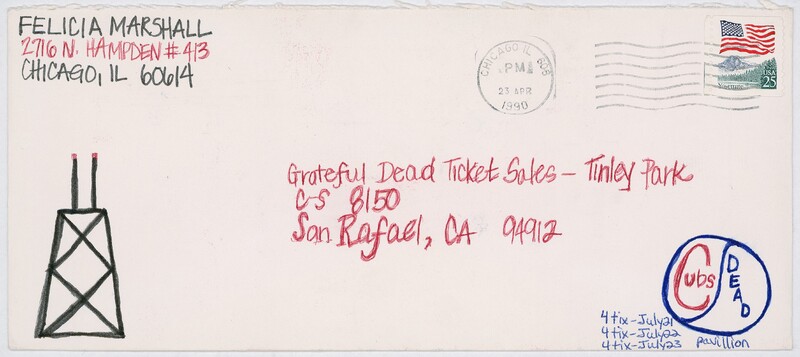 FELICIA MARSHALL
2716 N. HAMPDEN # 413
CHICAGO, IL 60614
CHICAGO IL 606
PM
23 APR
1990
USA
25
Grateful Dead Ticket Sales - Tinley Park
C-S 8150
San Rafael, CA 94912
Cubs
DEAD
4 tix-July21
4 tix-July22
4 tix-July23
pavillion